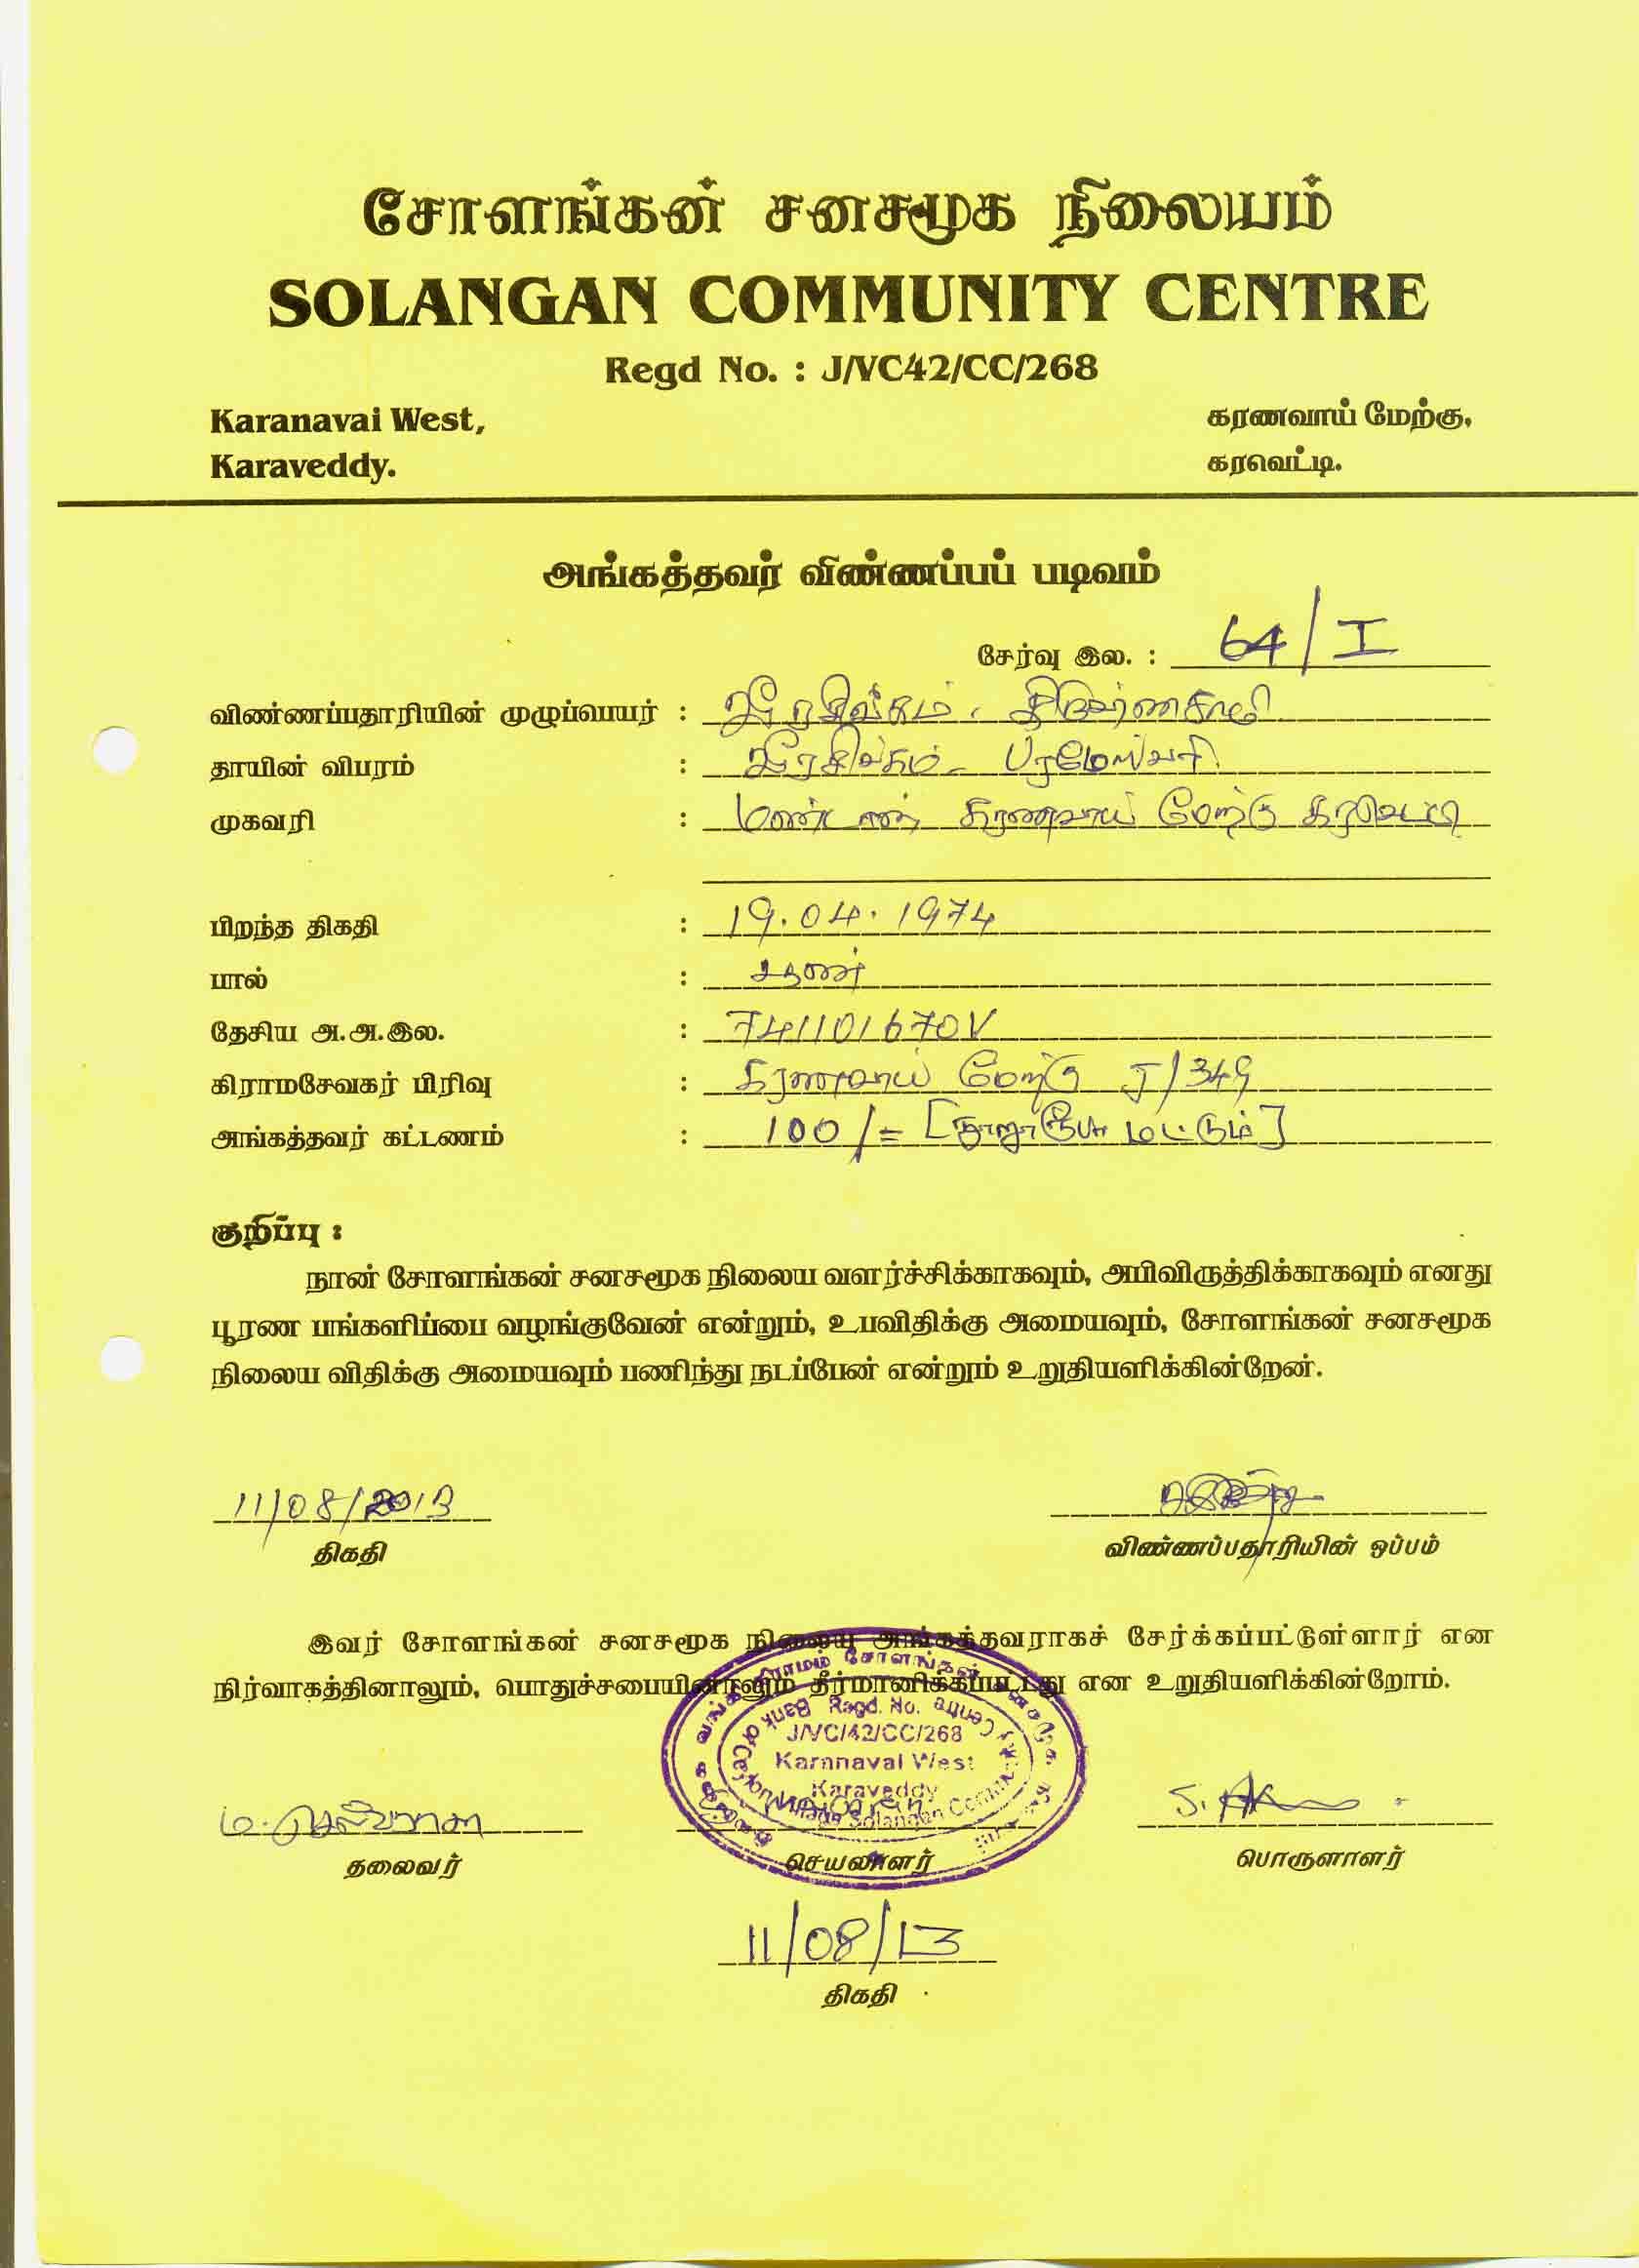 சோளங்கன் சனசமூக நிலையம்
SOLANGAN COMMUNITY CENTRE
Regd No. : J/VC42/CC/268
Karanavai West, கரணவாய் மேற்கு,
Karaveddy. கரவெட்டி.
அங்கத்தவர் விண்ணப்பப் படிவம்
சேர்வு இல. : 64/I
விண்ணப்பதாரியின் முழுப்பெயர் :
தாயின் விபரம் : பரமேஸ்வரி
முகவரி : மண்டான் கரணவாய் மேற்கு கரவெட்டி
பிறந்த திகதி : 19.04.1974
பால் : ஆண்
தேசிய அ.அ.இல. : 741101670V
கிராமசேவகர் பிரிவு : கரணவாய் மேற்கு J/349
அங்கத்தவர் கட்டணம் : 100/= [நூறுரூபா மட்டும்]
குறிப்பு :
நான் சோளங்கன் சனசமூக நிலைய வளர்ச்சிக்காகவும், அபிவிருத்திக்காகவும் எனது
பூரண பங்களிப்பை வழங்குவேன் என்றும், உபவிதிக்கு அமையவும், சோளங்கன் சனசமூக
நிலைய விதிக்கு அமையவும் பணிந்து நடப்பேன் என்றும் உறுதியளிக்கின்றேன்.
11/08/2013
திகதி விண்ணப்பதாரியின் ஒப்பம்
இவர் சோளங்கன் சனசமூக நிலைய அங்கத்தவராகச் சேர்க்கப்பட்டுள்ளார் என
நிர்வாகத்தினாலும், பொதுச்சபையினாலும் தீர்மானிக்கப்பட்டது என உறுதியளிக்கின்றோம்.
Regd. No.
J/VC/42/CC/268
Karanavai West
Karaveddy
தலைவர் செயலாளர் பொருளாளர்
11/08/13
திகதி